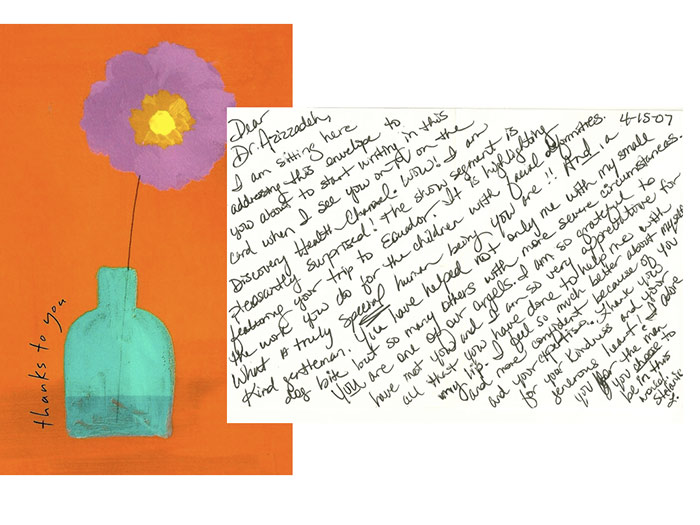 thanks to you
4-15-07
Dear
Dr. Azizzadeh,
I am sitting here
addressing this envelope to
you about to start writing in this
card when I see you on on the
Discovery Health Channel. WOW! I am
pleasantly surprised! The show segment is
featuring your trip to Ecuador. It is highlighting
the work you do for the children with facial deformities.
What a truly special human being you are!! And, a
kind gentleman. You have helped not only me with my small
dog bite but so many others with more severe circumstances.
You are one of our angels. I am so grateful to
have met you and I am so very appreciative for
all that you have done to help me with
my lip. I feel so much better about myself
and more confident because of you
and your expertise. Thank you
for your kindness and your
generous heart. I adore
you for the man
you choose to
be in this
world.
Stefanie